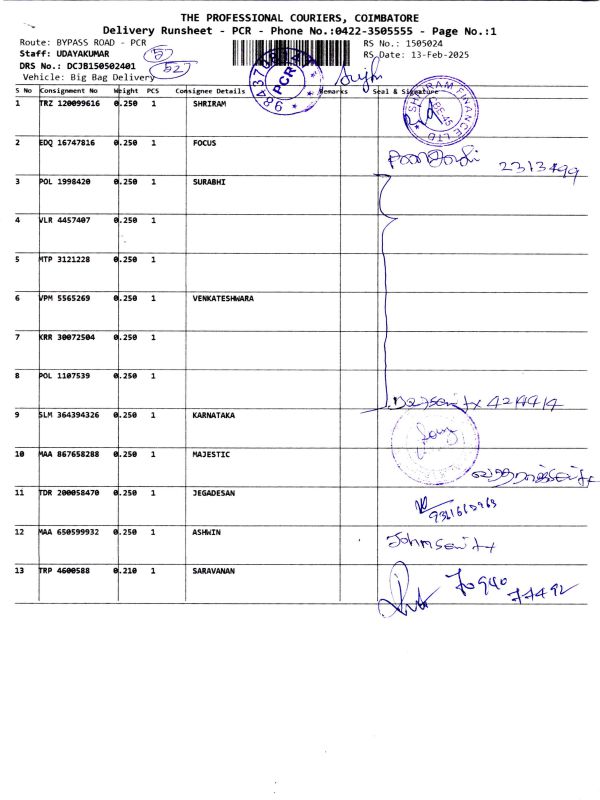 THE PROFESSIONAL COURIERS, COIMBATORE
Delivery Runsheet - PCR - Phone No.:0422-3505555 - Page No.:1
Route: BYPASS ROAD - PCR
RS No.: 1505024
Staff: UDAYAKUMAR
5
RS Date: 13-Feb-2025
DRS No.: DCJB150502401
52
Vehicle: Big Bag Delivery
PCR
S No Consignment No Weight PCS Consignee Details Remarks Seal & Signature
1 TRZ 120099616 0.250 1 SHRIRAM
SHRIRAM FINANCE LTD
2 EDQ 16747816 0.250 1 FOCUS
2313499
3 POL 1998420 0.250 1 SURABHI
4 VLR 4457407 0.250 1
5 MTP 3121228 0.250 1
6 VPM 5565269 0.250 1 VENKATESHWARA
7 KRR 30072504 0.250 1
8 POL 1107539 0.250 1
9 SLM 364394326 0.250 1 KARNATAKA
10 MAA 867658288 0.250 1 MAJESTIC
11 TDR 200058470 0.250 1 JEGADESAN
12 MAA 650599932 0.250 1 ASHWIN
13 TRP 4600588 0.210 1 SARAVANAN
70940
77492